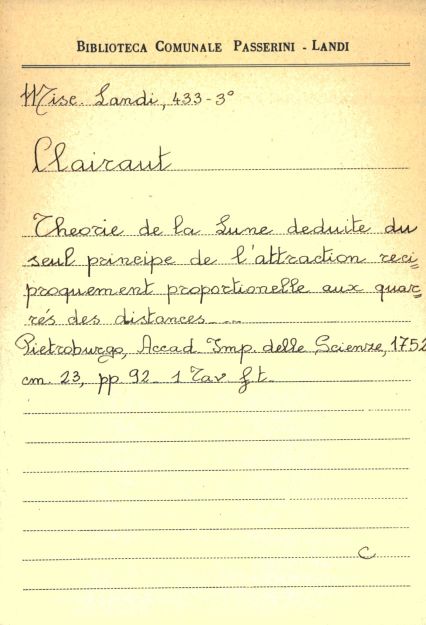 BIBLIOTECA COMUNALE PASSERINI - LANDI
Misc. Landi, 433-3°
Clairaut
Theorie de la Lune deduite du
seul principe de l'attraction reci=
proquement proportionelle aux quar=
rés des distances....
Pietroburgo, Accad. Imp. delle Scienze, 1752
cm. 23, pp. 92. 1 Tav f.t.
C